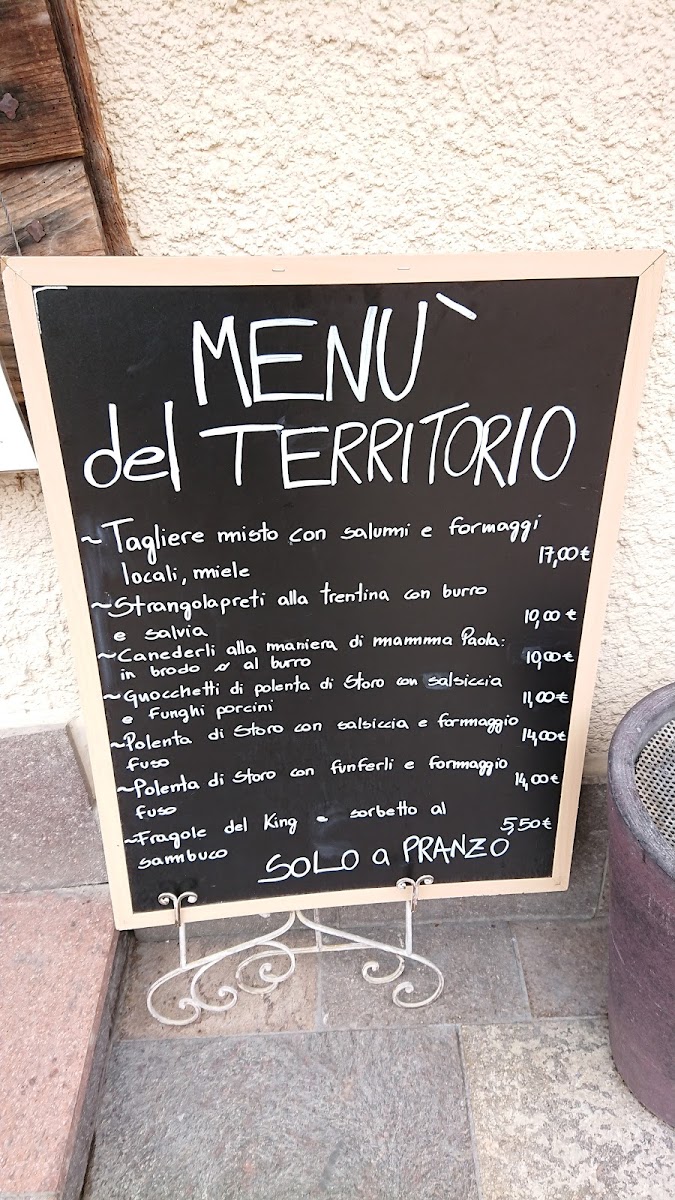 MENÙ
del TERRITORIO
~Tagliere misto con salumi e formaggi
locali, miele 17,00€
~Strangolapreti alla trentina con burro
e salvia 10,00€
~Canederli alla maniera di mamma Paola:
in brodo o al burro 10,00€
~Gnocchetti di polenta di Storo con salsiccia
e funghi porcini 11,00€
~Polenta di Storo con salsiccia e formaggio
fuso 14,00€
~Polenta di Storo con funferli e formaggio
fuso 14,00€
~Fragole del King e sorbetto al
sambuco 5,50€
SOLO a PRANZO